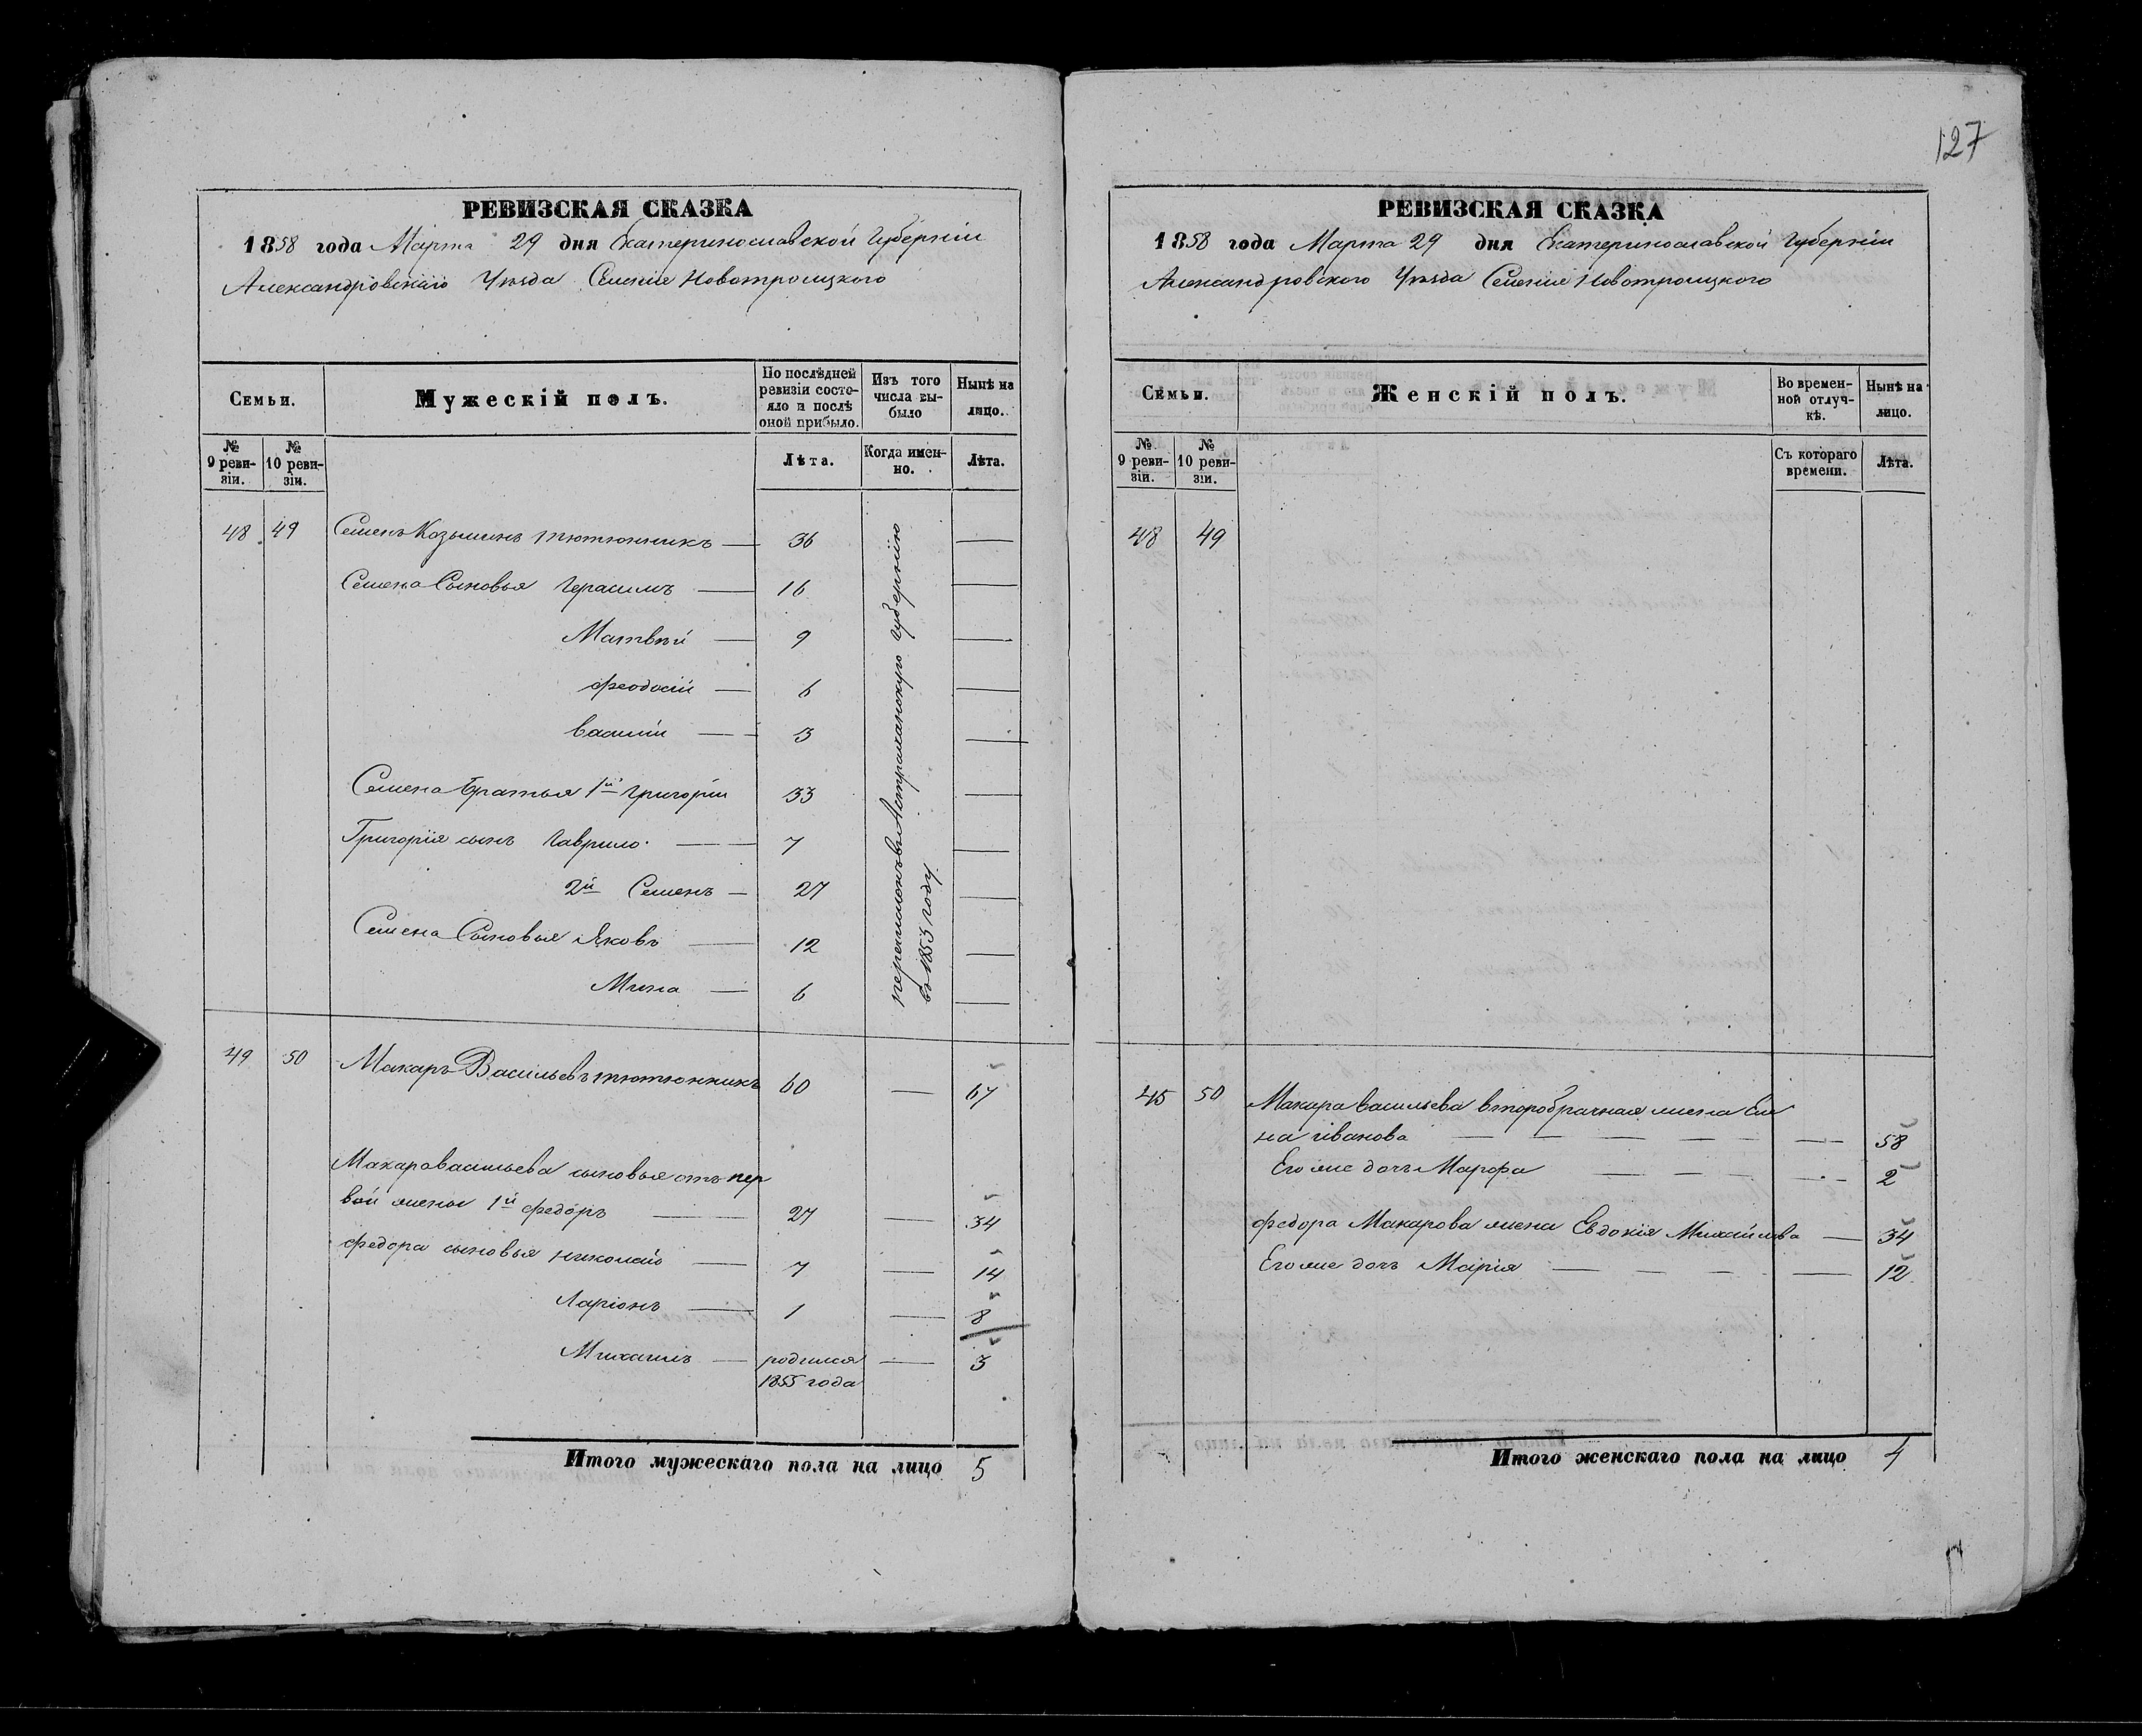 127
РЕВИЗСКАЯ СКАЗКА
1858 года Марта 29 дня Екатеринославской Губерніи
Александровскаго Уѣзда Селенія Новотроицкого
Семьи.
Мужескій полъ.
По послѣдней ревизіи состояло и послѣ оной прибыло.
Изъ того числа выбыло
Нынѣ на лицо.
№ 9 ревизіи.
№ 10 ревизіи.
Лѣта.
Когда именно.
Лѣта.
48 49 Семенъ Козьминъ Тютюнникъ — 36 —
Семена Сыновья Герасимъ — 16 —
Матвѣй — 9 —
Феодосій — 6 —
Василій — 3 —
Семена братья 1й Григорій 33 —
Григорія сынъ Гаврило — 7 —
2й Семенъ — 27 —
Семена Сыновья Яковъ — 12 —
Мина — 6 —
перечисленъ въ Астраханскую Губернію
въ 1855 году
49 50 Макаръ Васильевъ Тютюнникъ 60 — 67
Макара Васильева сыновья отъ пер
вой жены 1й Федоръ — 27 — 34
Федора сыновья Николай — 7 — 14
Ларіонъ — 1 — 8
Михаилъ — родился — 3
1855 года
Итого мужескаго пола на лицо 5
РЕВИЗСКАЯ СКАЗКА
1858 года Марта 29 дня Екатеринославской Губерніи
Александровского Уѣзда Селенія Новотроицкого
Семьи.
Женскій полъ.
Во временной отлучкѣ.
Нынѣ на лицо.
№ 9 ревизіи.
№ 10 ревизіи.
Съ котораго времени.
Лѣта.
48 49
45 50 Макара Васильева второбрачная жена Еле
на Иванова — — — — — — 58
Его же дочь Марфа — — — — 2
Федора Макарова жена Евдокія Михайлова — 34
Его же дочь Марія — — — — 12
Итого женскаго пола на лицо 4